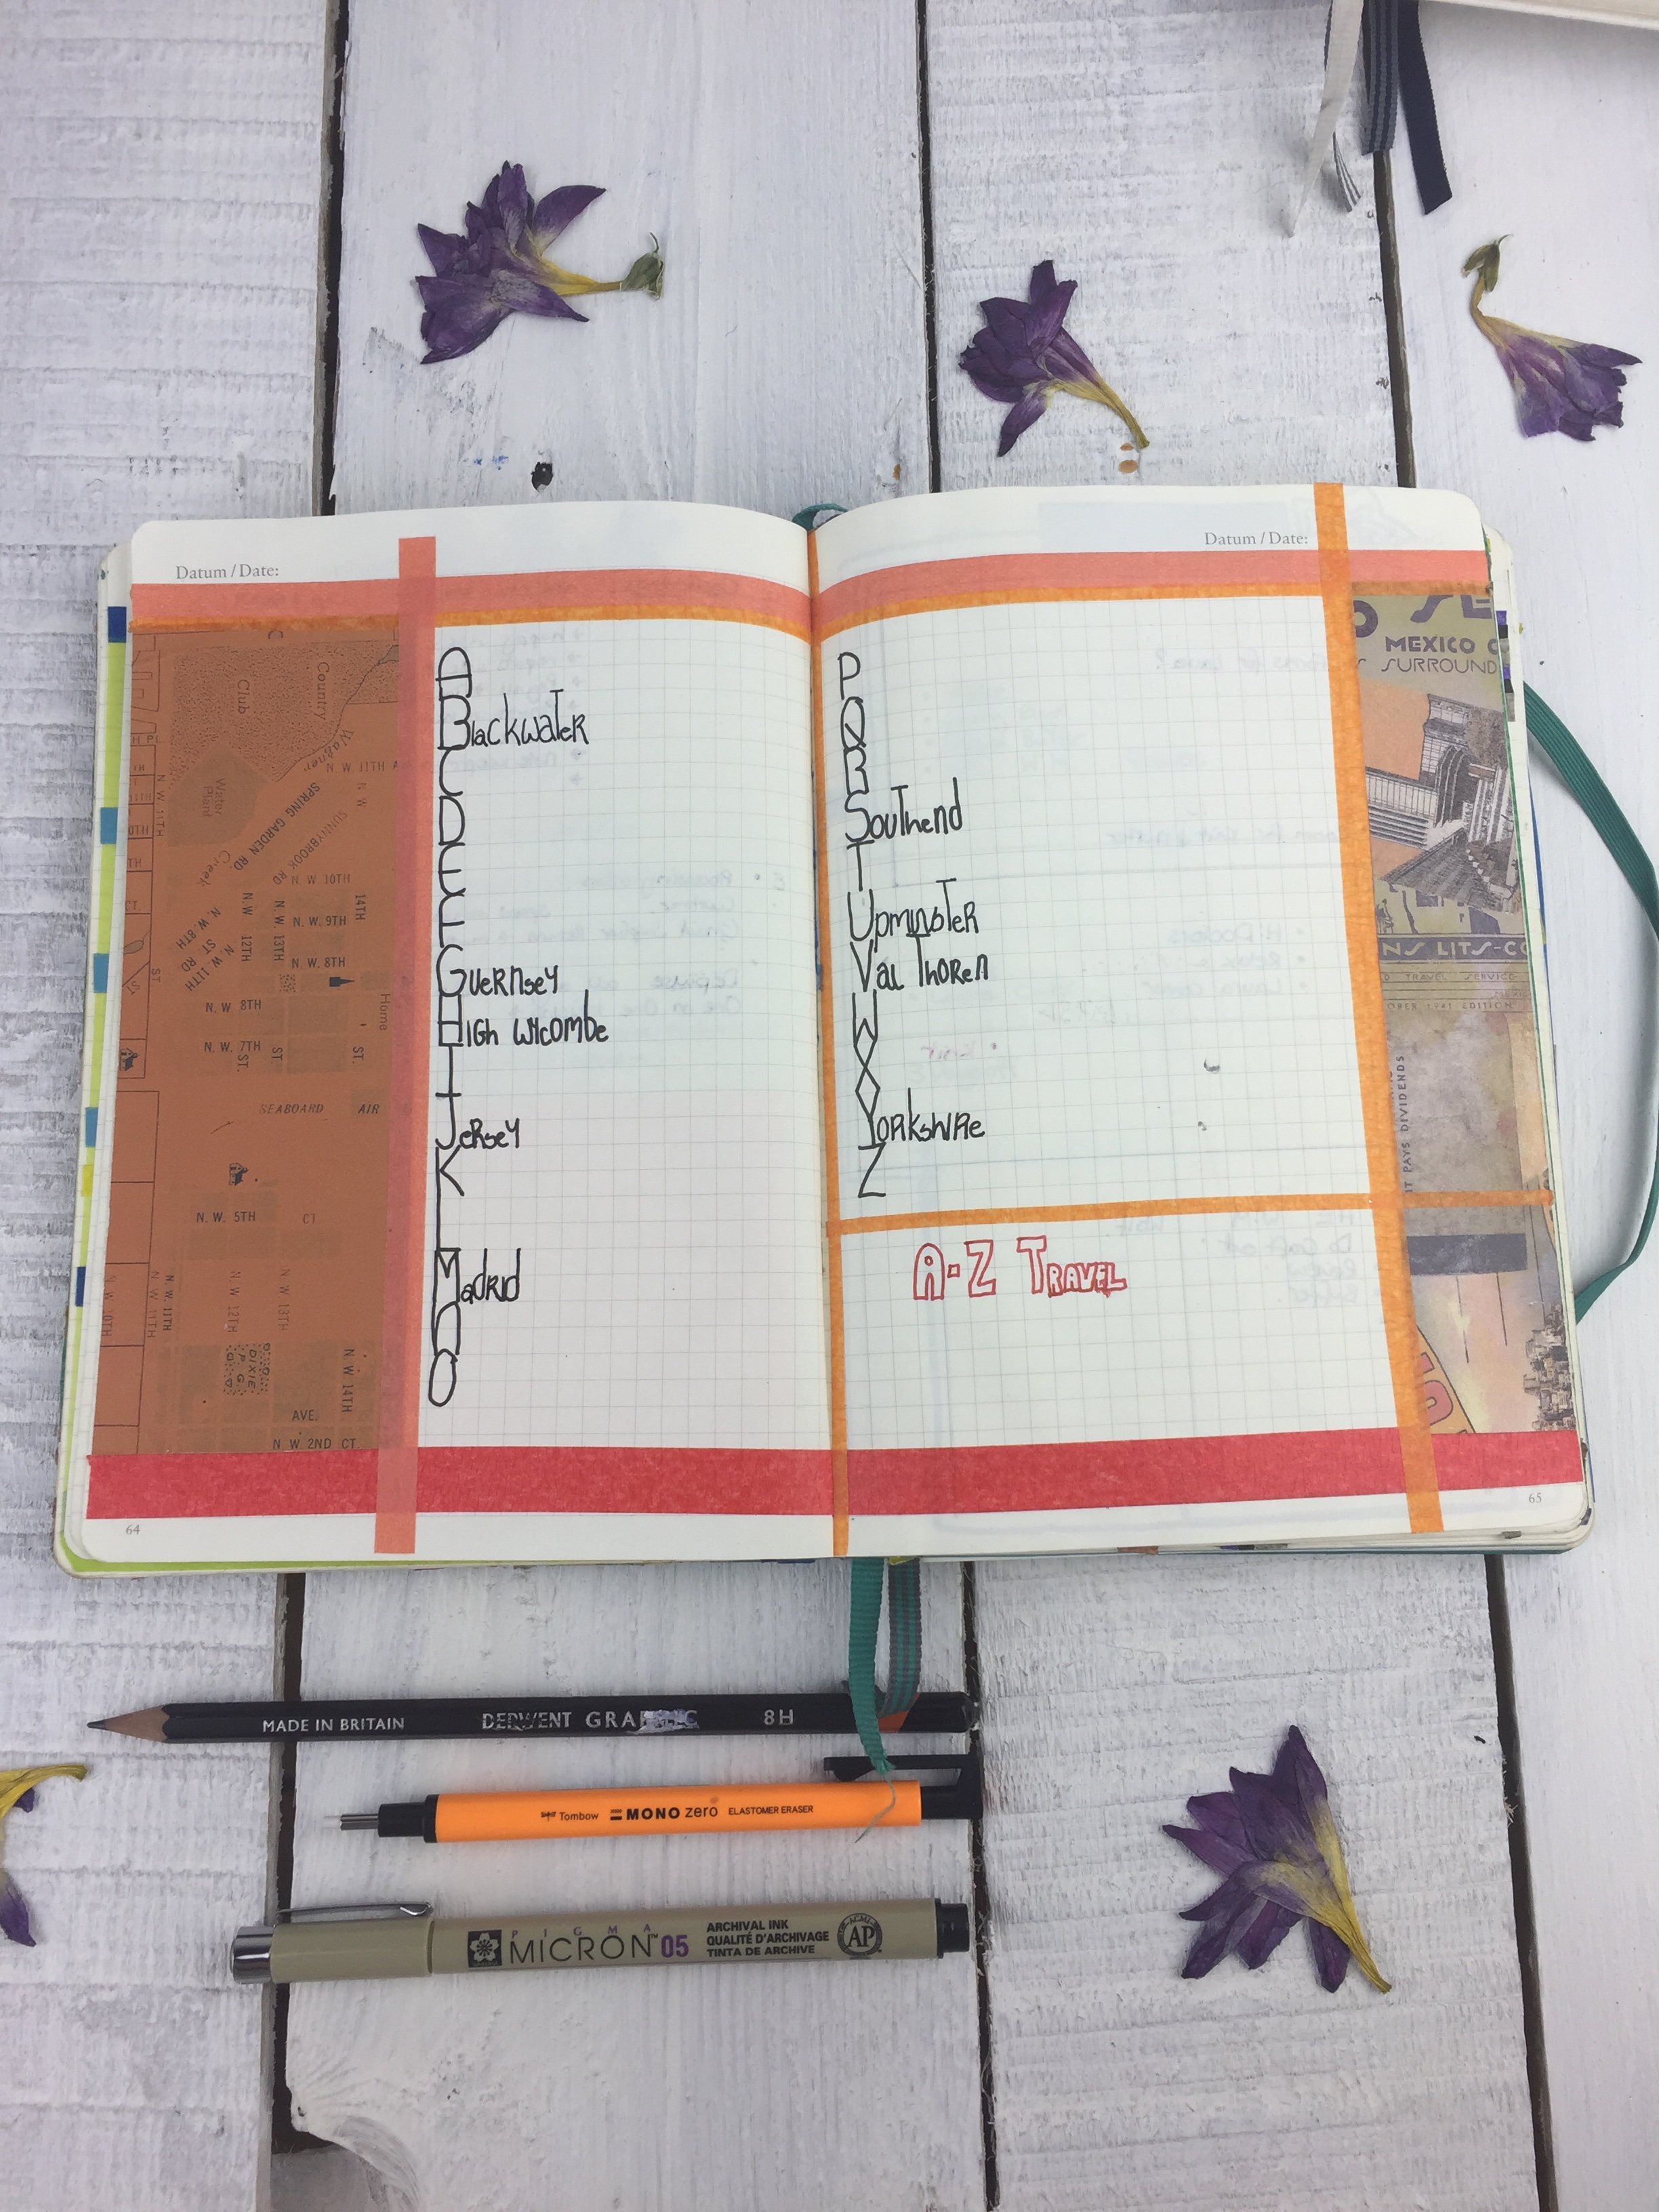 Datum / Date:
Country
Club
Wagner
N. W. 11TH A
Water
Plant
SPRING GARDEN RD.
SUNNYBROOK RD
Creek
N. W. 10TH
14TH
N. W. 9TH
N. W. 8TH
ST RD
N. W. 11TH
N.W.
12TH
N. W. 13TH
N. W. 8TH
N. W. 8TH
Home
N. W. 7TH
ST.
ST.
ST.
SEABOARD AIR
N. W. 5TH CT
N. W. 10TH
N. W. 11TH
N. W. 11TH
N. W. 12TH
N. W. 13TH
N. W. 14TH
DIXIE
AVE.
N. W. 2ND CT.
A
Blackwater
C
D
E
F
Guernsey
High Wycombe
I
Jersey
K
L
Madrid
N
O
64
Datum / Date:
P
Q
R
Southend
T
Upminster
Val Thoren
W
X
Yorkshire
Z
A-Z Travel
MEXICO C
SURROUND
NS LITS-CO
D TRAVEL SERVICE
OBER 1941 EDITION
IT PAYS DIVIDENDS
65
MADE IN BRITAIN DERWENT GRAPHIC 8H
Tombow MONO zero ELASTOMER ERASER
PIGMA
MICRON™ 05
ARCHIVAL INK
QUALITÉ D'ARCHIVAGE
TINTA DE ARCHIVE
ACMI
AP